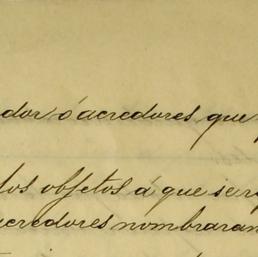 dor ó acredores que
los objetos á que se re
acredores nombraran